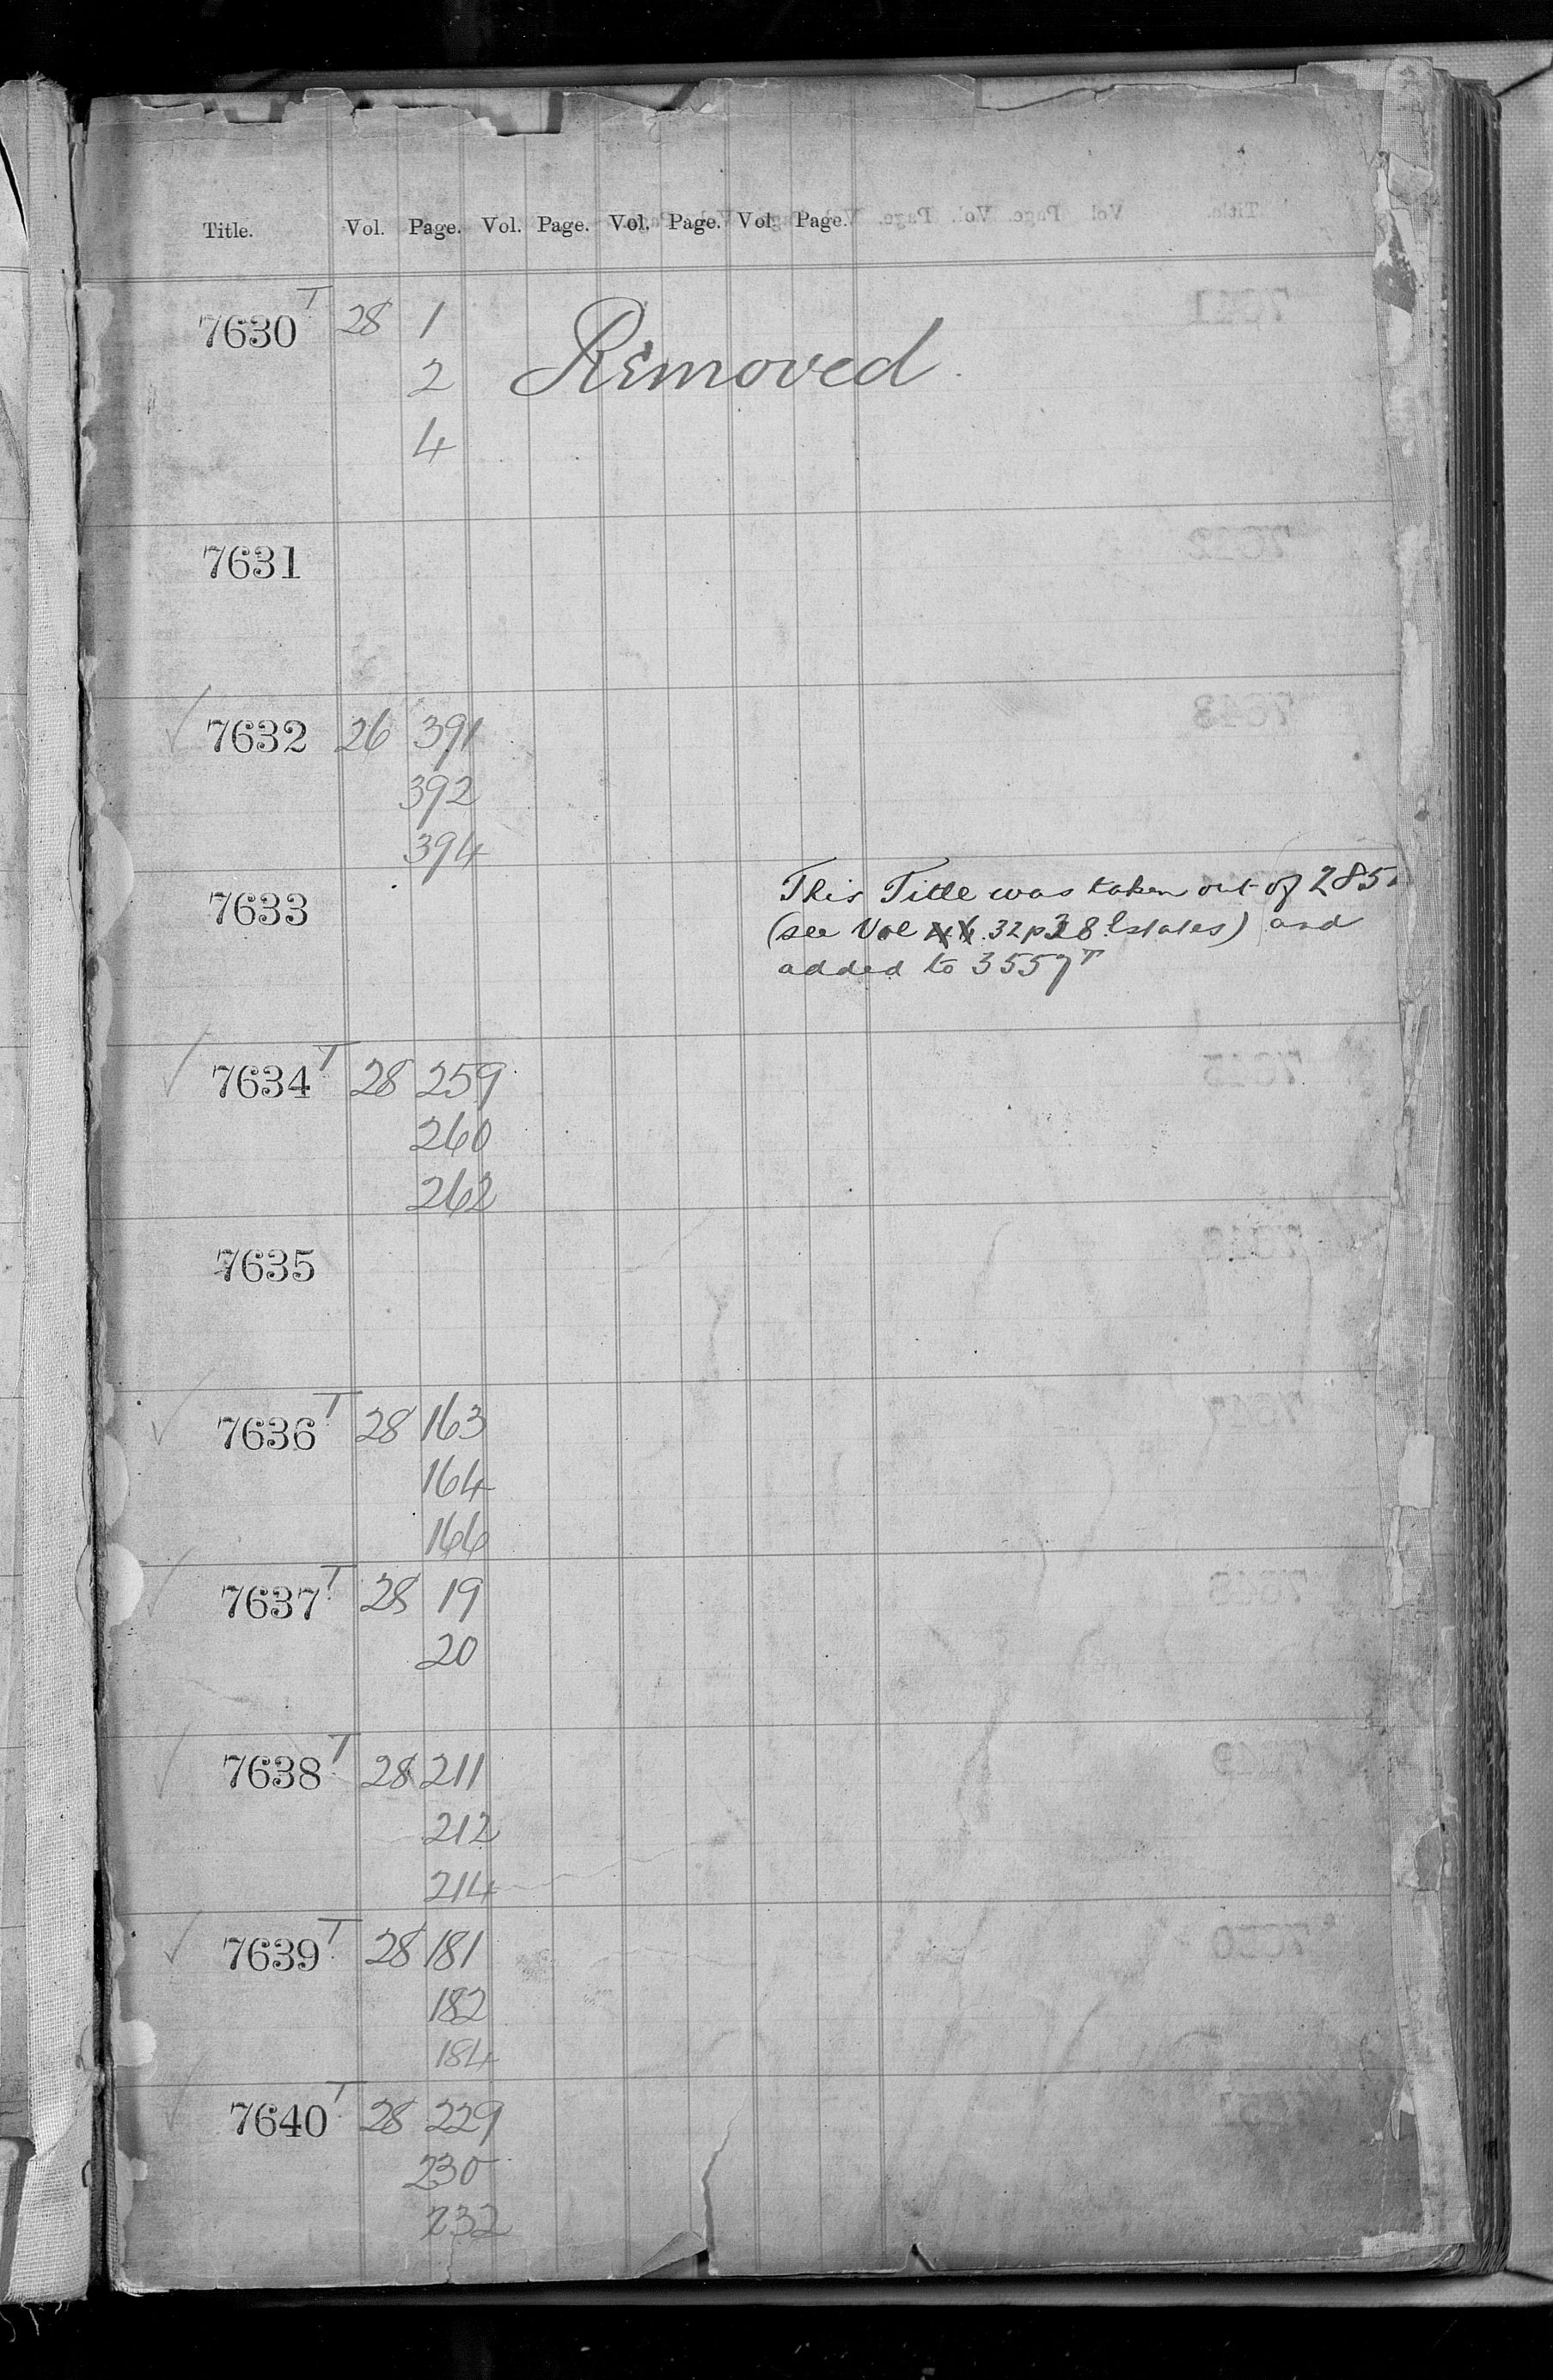 Title. Vol. Page. Vol. Page. Vol. Page. Vol. Page.
7630 T 28 1
2 Removed.
4
7631
7632 26 391
392
394
7633 This Title was taken out of 285
(see Vol 32 p 38 Estates) and
added to 3557 T
7634 T 28 259
260
262
7635
7636 T 28 163
164
166
7637 T 28 19
20
7638 T 28 211
212
214
7639 T 28 181
182
184
7640 T 28 229
230
232